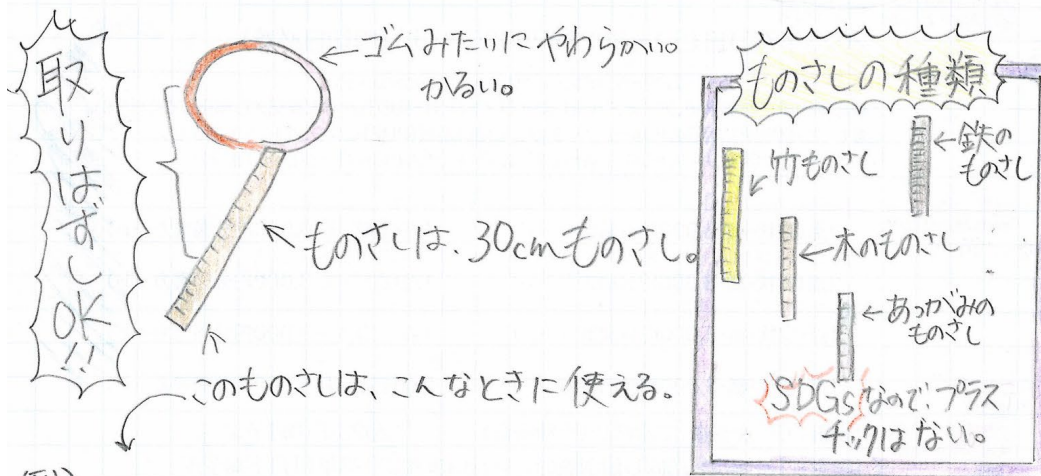 取りはずしOK!!
←ゴムみたいにやわらかい。
かるい。
ものさしは、30cmものさし。
このものさしは、こんなときに使える。
ものさしの種類
竹ものさし
鉄の
ものさし
木のものさし
あつがみの
ものさし
SDGsなので、プラス
チックはない。